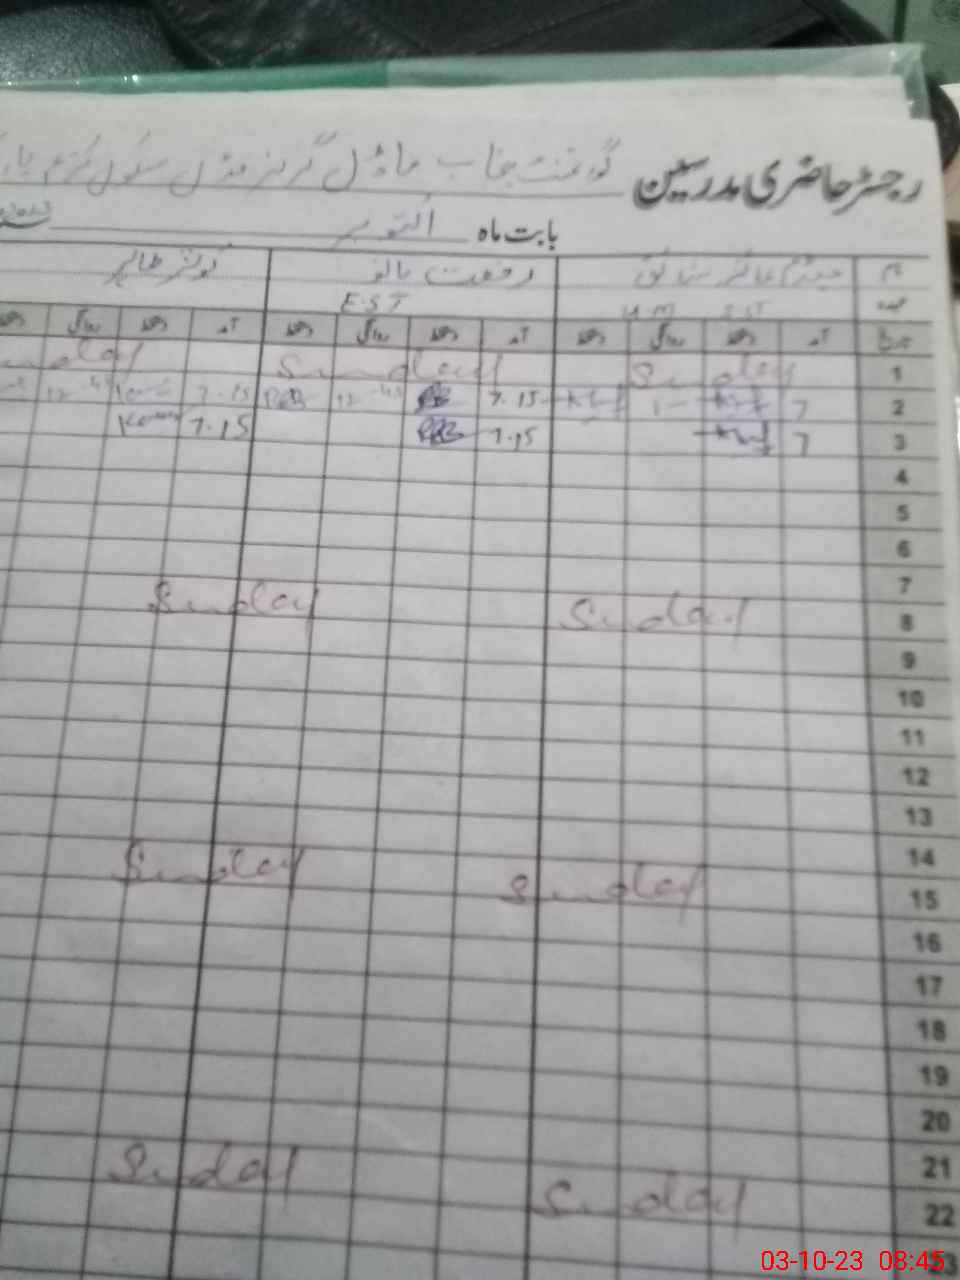 رجسٹر حاضری مدرسین گورنمنٹ جناب ماڈل گرلز مڈل سکول
بابت ماہ اکتوبر
نام میڈم رفعت بانو کوثر طاہر
عہدہ SST EST
تاریخ آمد دستخط روانگی دستخط آمد دستخط روانگی دستخط آمد دستخط روانگی دستخط
1 Sunday Sunday Sunday
2 7 1 7.15 12-45 7.15 12-45
3 7 7.15 7.15
4
5
6
7
8 Sunday Sunday
9
10
11
12
13
14
15 Sunday Sunday
16
17
18
19
20
21
22 Sunday Sunday
03-10-23 08:45